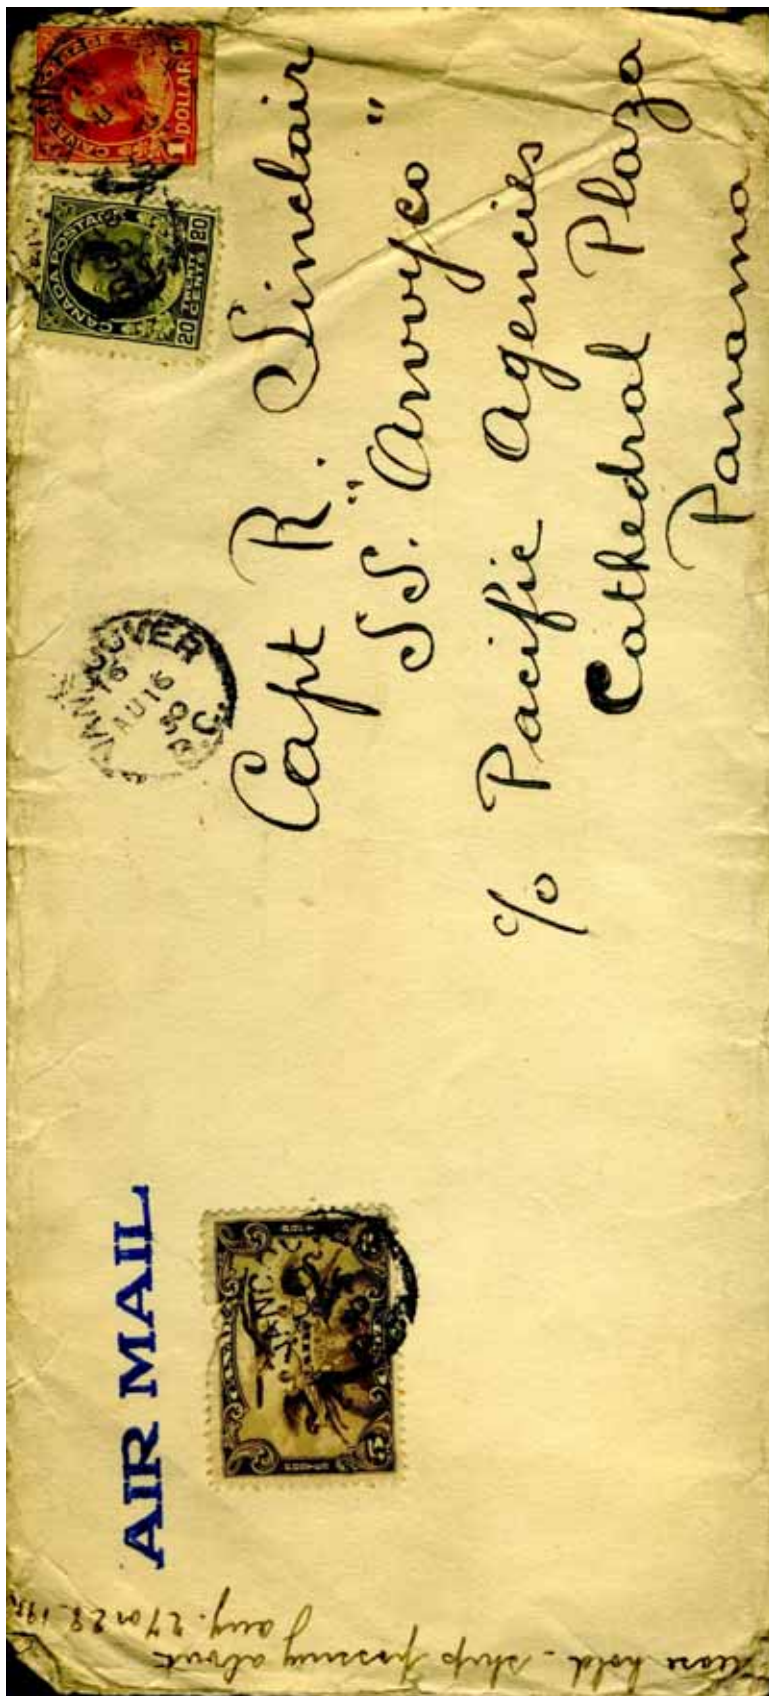 AIR MAIL
VANCOUVER
16
AU 16
30
B.C.
CANADA POSTAGE
20 20
CENTS
1 DOLLAR 1
Capt R. Sinclair
S.S. "Arwyco"
c/o Pacific Agencies
Cathedral Plaza
Panama
hold - ship passing about
Aug. 27 or 28